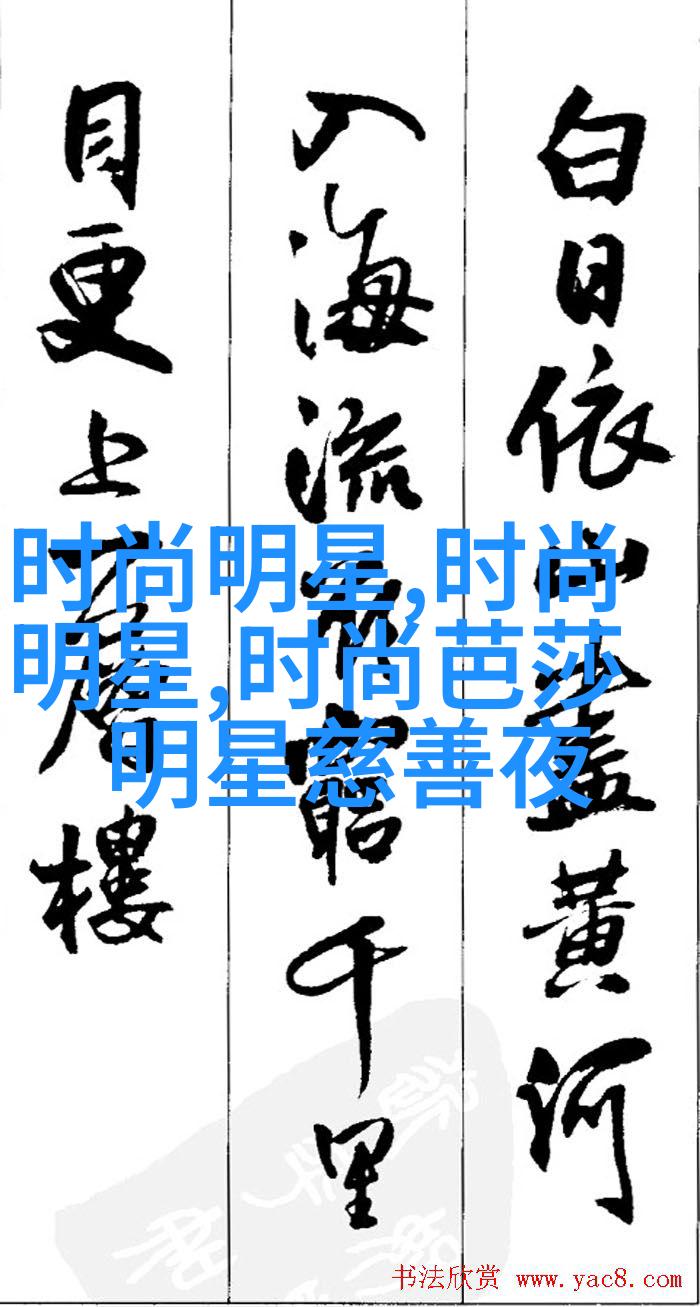 白日依山盡黃河
入海流欲窮千里
目更上一層樓
时尚明星,时尚
明星,时尚芭莎
明星慈善夜
书法欣赏 www.yac8.com